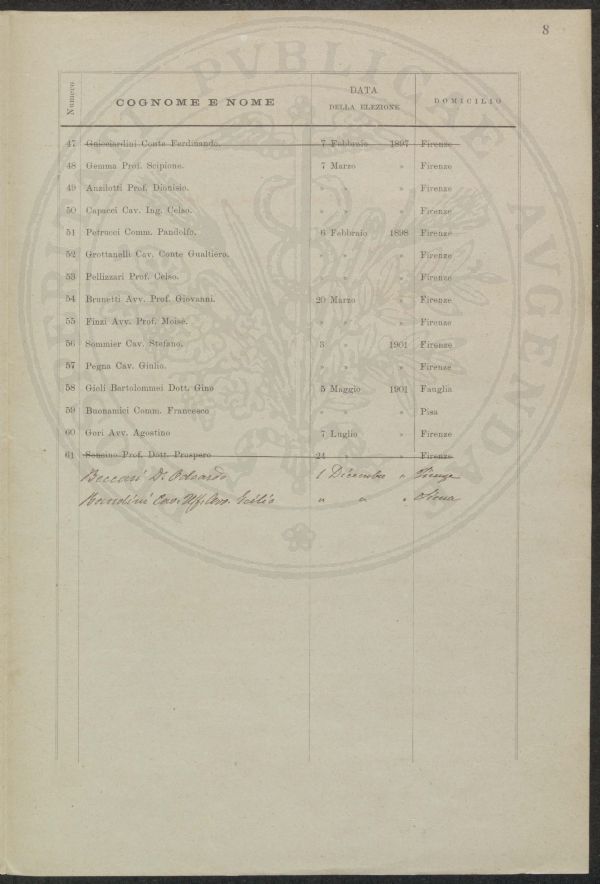 8
Numero COGNOME E NOME DATA DELLA ELEZIONE DOMICILIO
47 Guicciardini Conte Ferdinando. 7 Febbraio 1897 Firenze
48 Gemma Prof. Scipione. 7 Marzo » Firenze
49 Anzilotti Prof. Dionisio. » » » Firenze
50 Capacci Cav. Ing. Celso. » » » Firenze
51 Petrucci Comm. Pandolfo. 6 Febbraio 1898 Firenze
52 Grottanelli Cav. Conte Gualtiero. » » » Firenze
53 Pellizzari Prof. Celso. » » » Firenze
54 Brunetti Avv. Prof. Giovanni. 20 Marzo » Firenze
55 Finzi Avv. Prof. Moisè. » » » Firenze
56 Sommier Cav. Stefano. 3 » 1901 Firenze
57 Pegna Cav. Giulio. » » » Firenze
58 Gioli Bartolommei Dott. Gino 5 Maggio 1901 Fauglia
59 Buonamici Comm. Francesco » » » Pisa
60 Gori Avv. Agostino 7 Luglio » Firenze
61 Soncino Prof. Dott. Prospero 24 » » Firenze
Beccari Dr. Odoardo 1 Dicembre » Firenze
Cav. Uff. Avv. Icilio » » » Siena
PVBLICAE AVGENDA